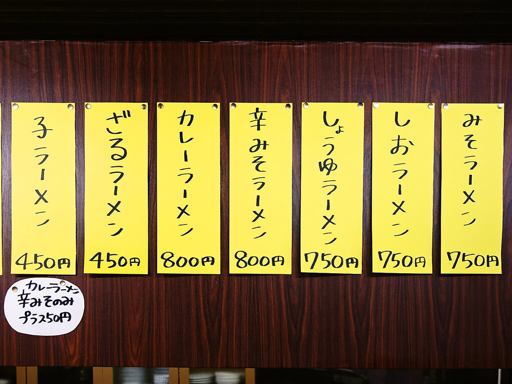 みそラーメン
750円
しおラーメン
750円
しょうゆラーメン
750円
辛みそラーメン
800円
カレーラーメン
800円
ざるラーメン
450円
子ラーメン
450円
カレーラーメン
辛みそのみ
プラス50円